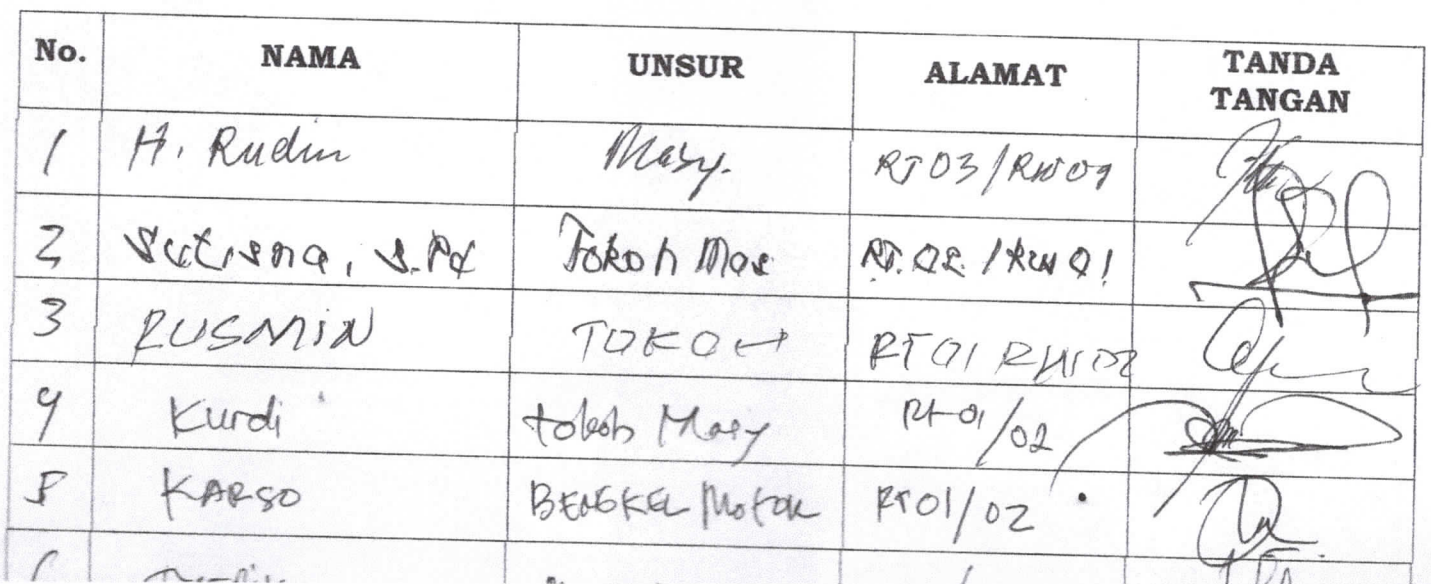 No. NAMA UNSUR ALAMAT TANDA TANGAN
1 H. Rudin Masy. RT 03/RW 01
2 Sutisna, S.Pd Tokoh Mas RT.02/RW 01
3 RUSMIN TOKOH RT 01 RW 02
4 Kurdi tokoh Masy Rt 01/02
5 KARSO BENGKEL Motor RT 01/02